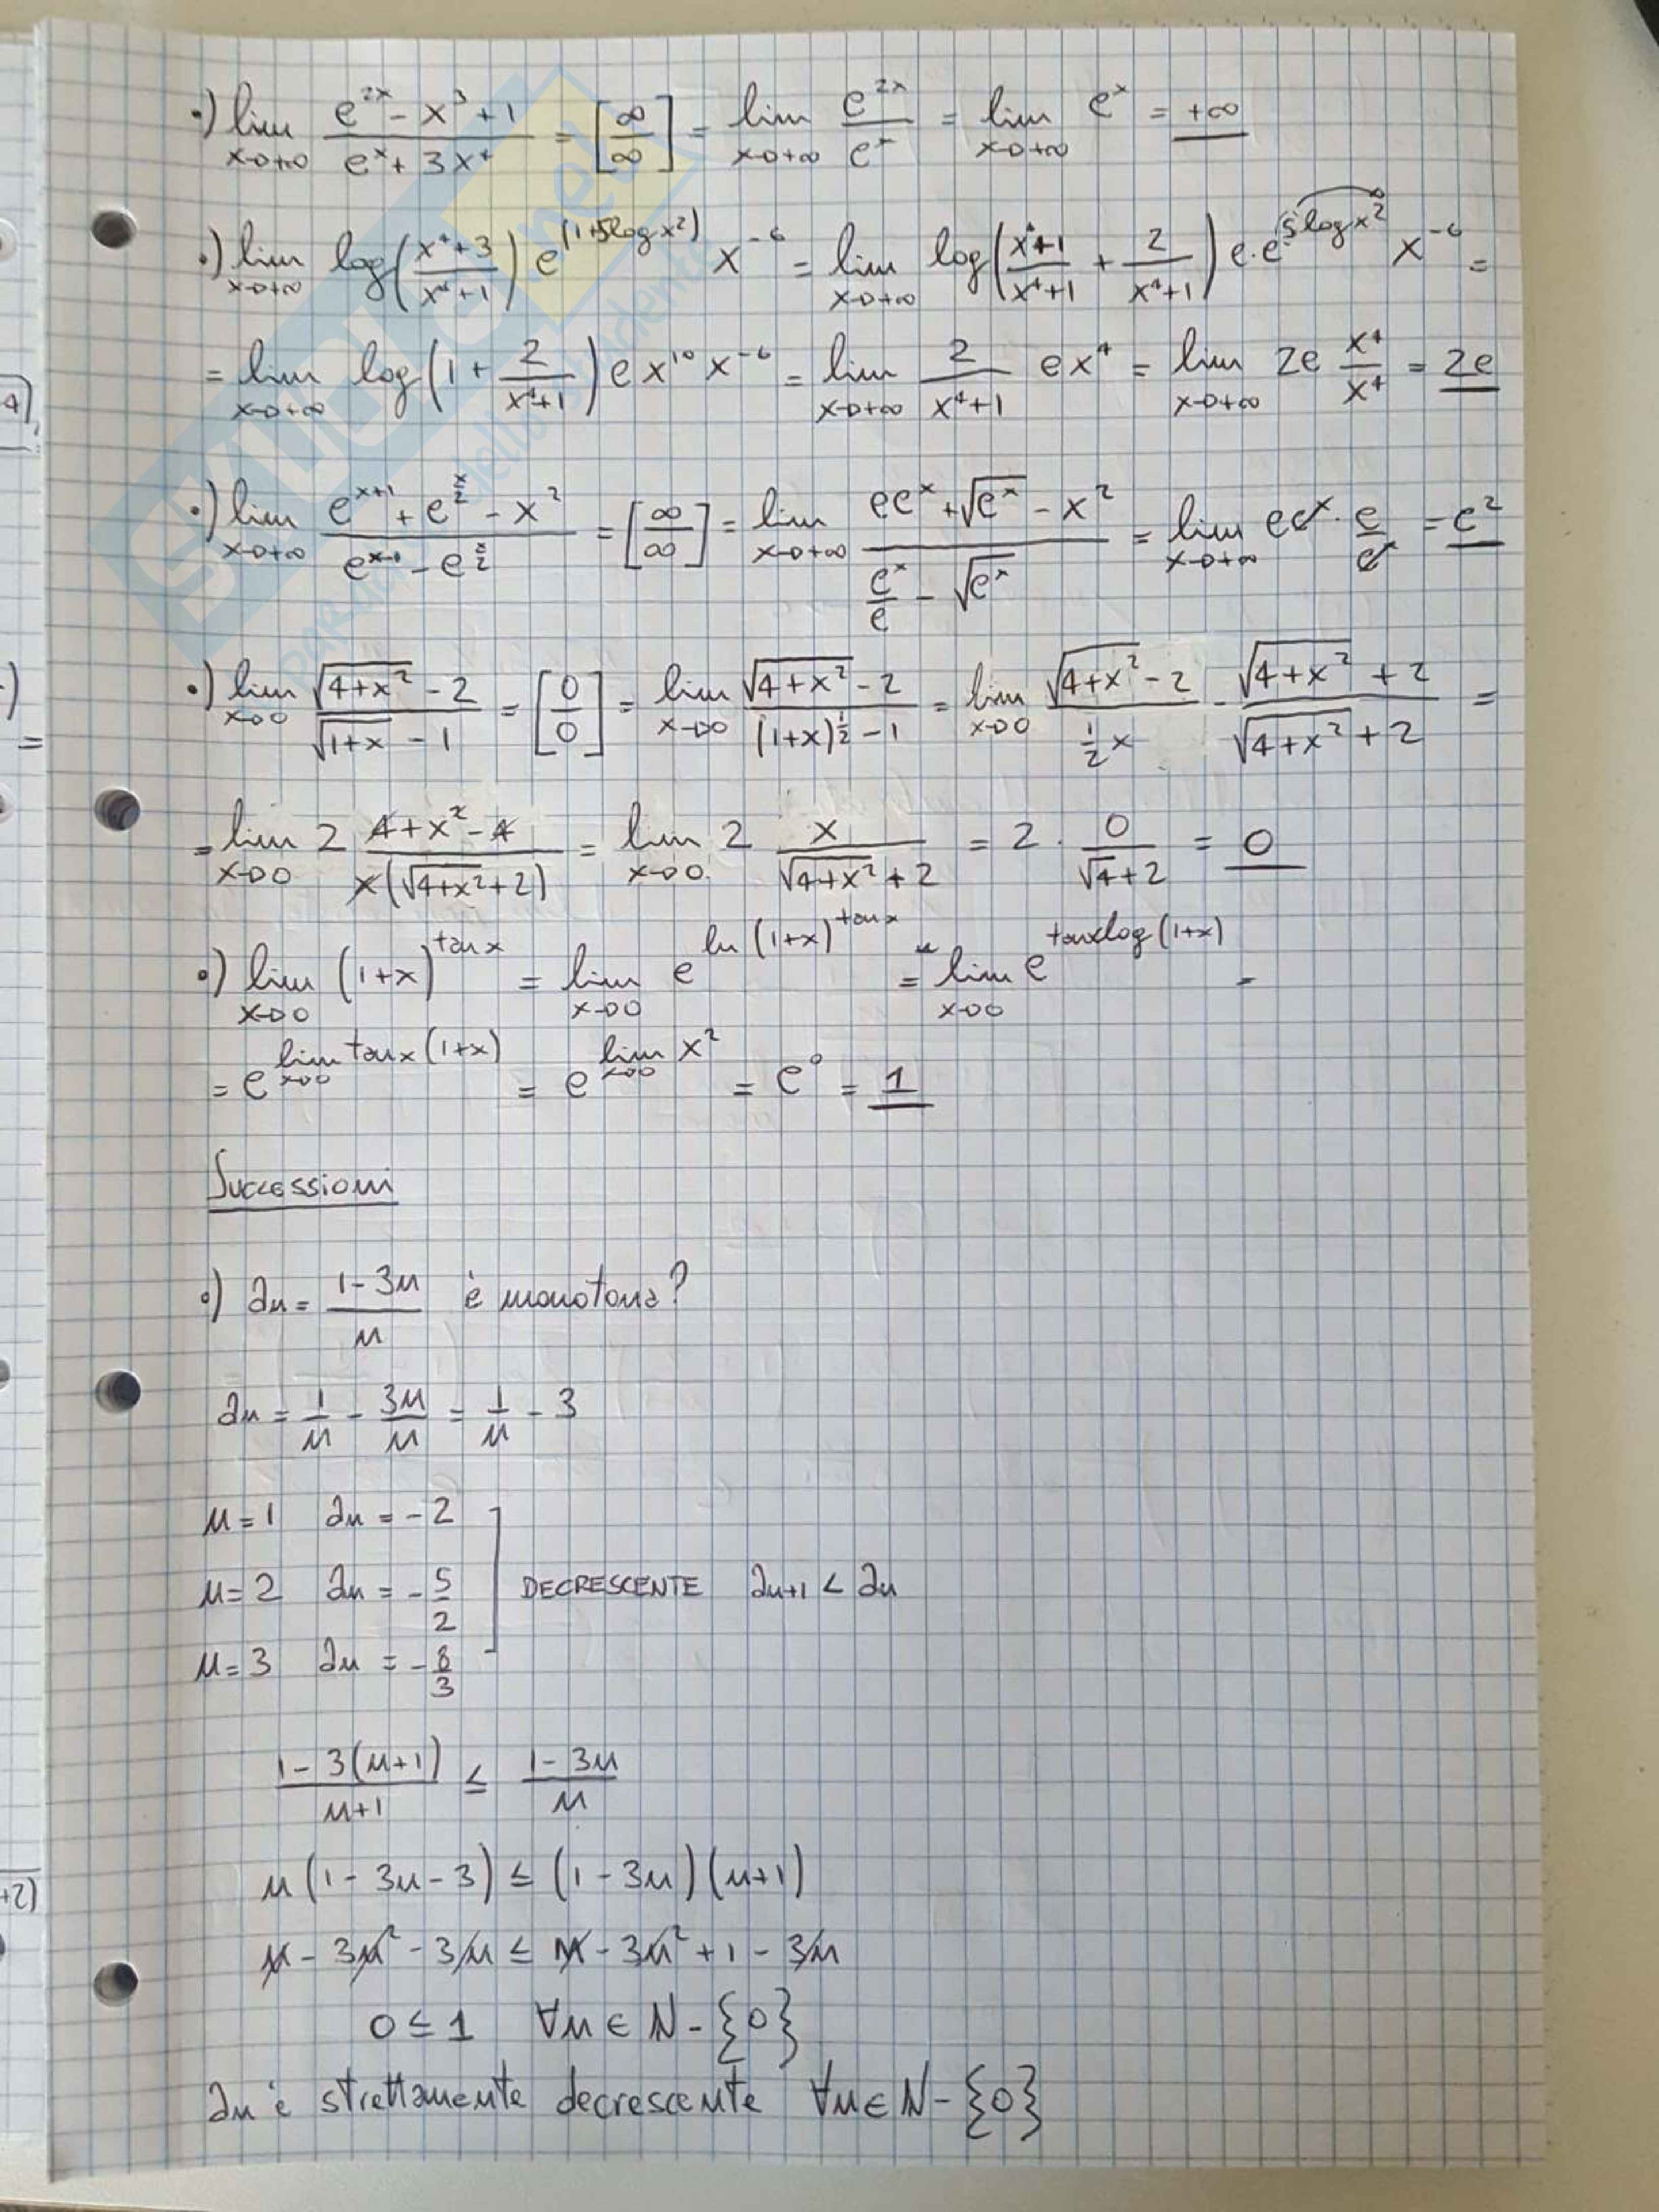 •) lim x→+∞ (e^{2x} - x^3 + 1)/(e^x + 3x^4) = [∞/∞] = lim x→+∞ e^{2x}/e^x = lim x→+∞ e^x = +∞
•) lim x→+∞ log((x^4+3)/(x^4+1)) e^{(1+5log x^2)} x^{-6} = lim x→+∞ log((x^4+1)/(x^4+1) + 2/(x^4+1)) e·e^{5log x^2} x^{-6} =
= lim x→+∞ log(1 + 2/(x^4+1)) e x^{10} x^{-6} = lim x→+∞ 2/(x^4+1) e x^4 = lim x→+∞ 2e x^4/x^4 = 2e
•) lim x→+∞ (e^{x+1} + e^{x/2} - x^2)/(e^{x-1} - e^{x/2}) = [∞/∞] = lim x→+∞ (ee^x + √e^x - x^2)/(e^x/e - √e^x) = lim x→+∞ ee^x · e/e^x = e^2
•) lim x→0 (√(4+x^2) - 2)/(√(1+x) - 1) = [0/0] = lim x→0 (√(4+x^2) - 2)/((1+x)^{1/2} - 1) = lim x→0 (√(4+x^2) - 2)/(1/2 x) · (√(4+x^2) + 2)/(√(4+x^2) + 2) =
= lim x→0 2 (4+x^2-4)/(x(√(4+x^2)+2)) = lim x→0 2 x/(√(4+x^2)+2) = 2 · 0/(√4+2) = 0
•) lim x→0 (1+x)^{tan x} = lim x→0 e^{ln(1+x)^{tan x}} = lim x→0 e^{tanxlog(1+x)} =
= e^{lim x→0 tan x(1+x)} = e^{lim x→0 x^2} = e^0 = 1
Successioni
•) an = (1-3n)/n è monotona?
an = 1/n - 3n/n = 1/n - 3
n=1 an = -2
n=2 an = -5/2 DECRESCENTE an+1 < an
n=3 an = -8/3
(1-3(n+1))/(n+1) ≤ (1-3n)/n
n(1-3n-3) ≤ (1-3n)(n+1)
n - 3n^2 - 3n ≤ n - 3n^2 + 1 - 3n
0 ≤ 1 ∀n∈N-{0}
an è strettamente decrescente ∀n∈N-{0}